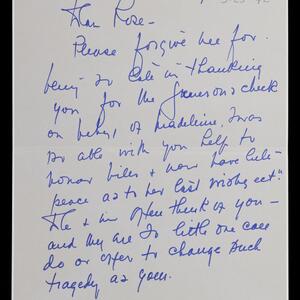 Dear Rose -
Please forgive me for
being so late in thanking
you for the generous check
on behalf of Madeline. I was
so able, with your help to
honor bills + now have
peace as to her last
He + we often think of you -
and say are so little one can
do or offer to change such
tragedy as yours.